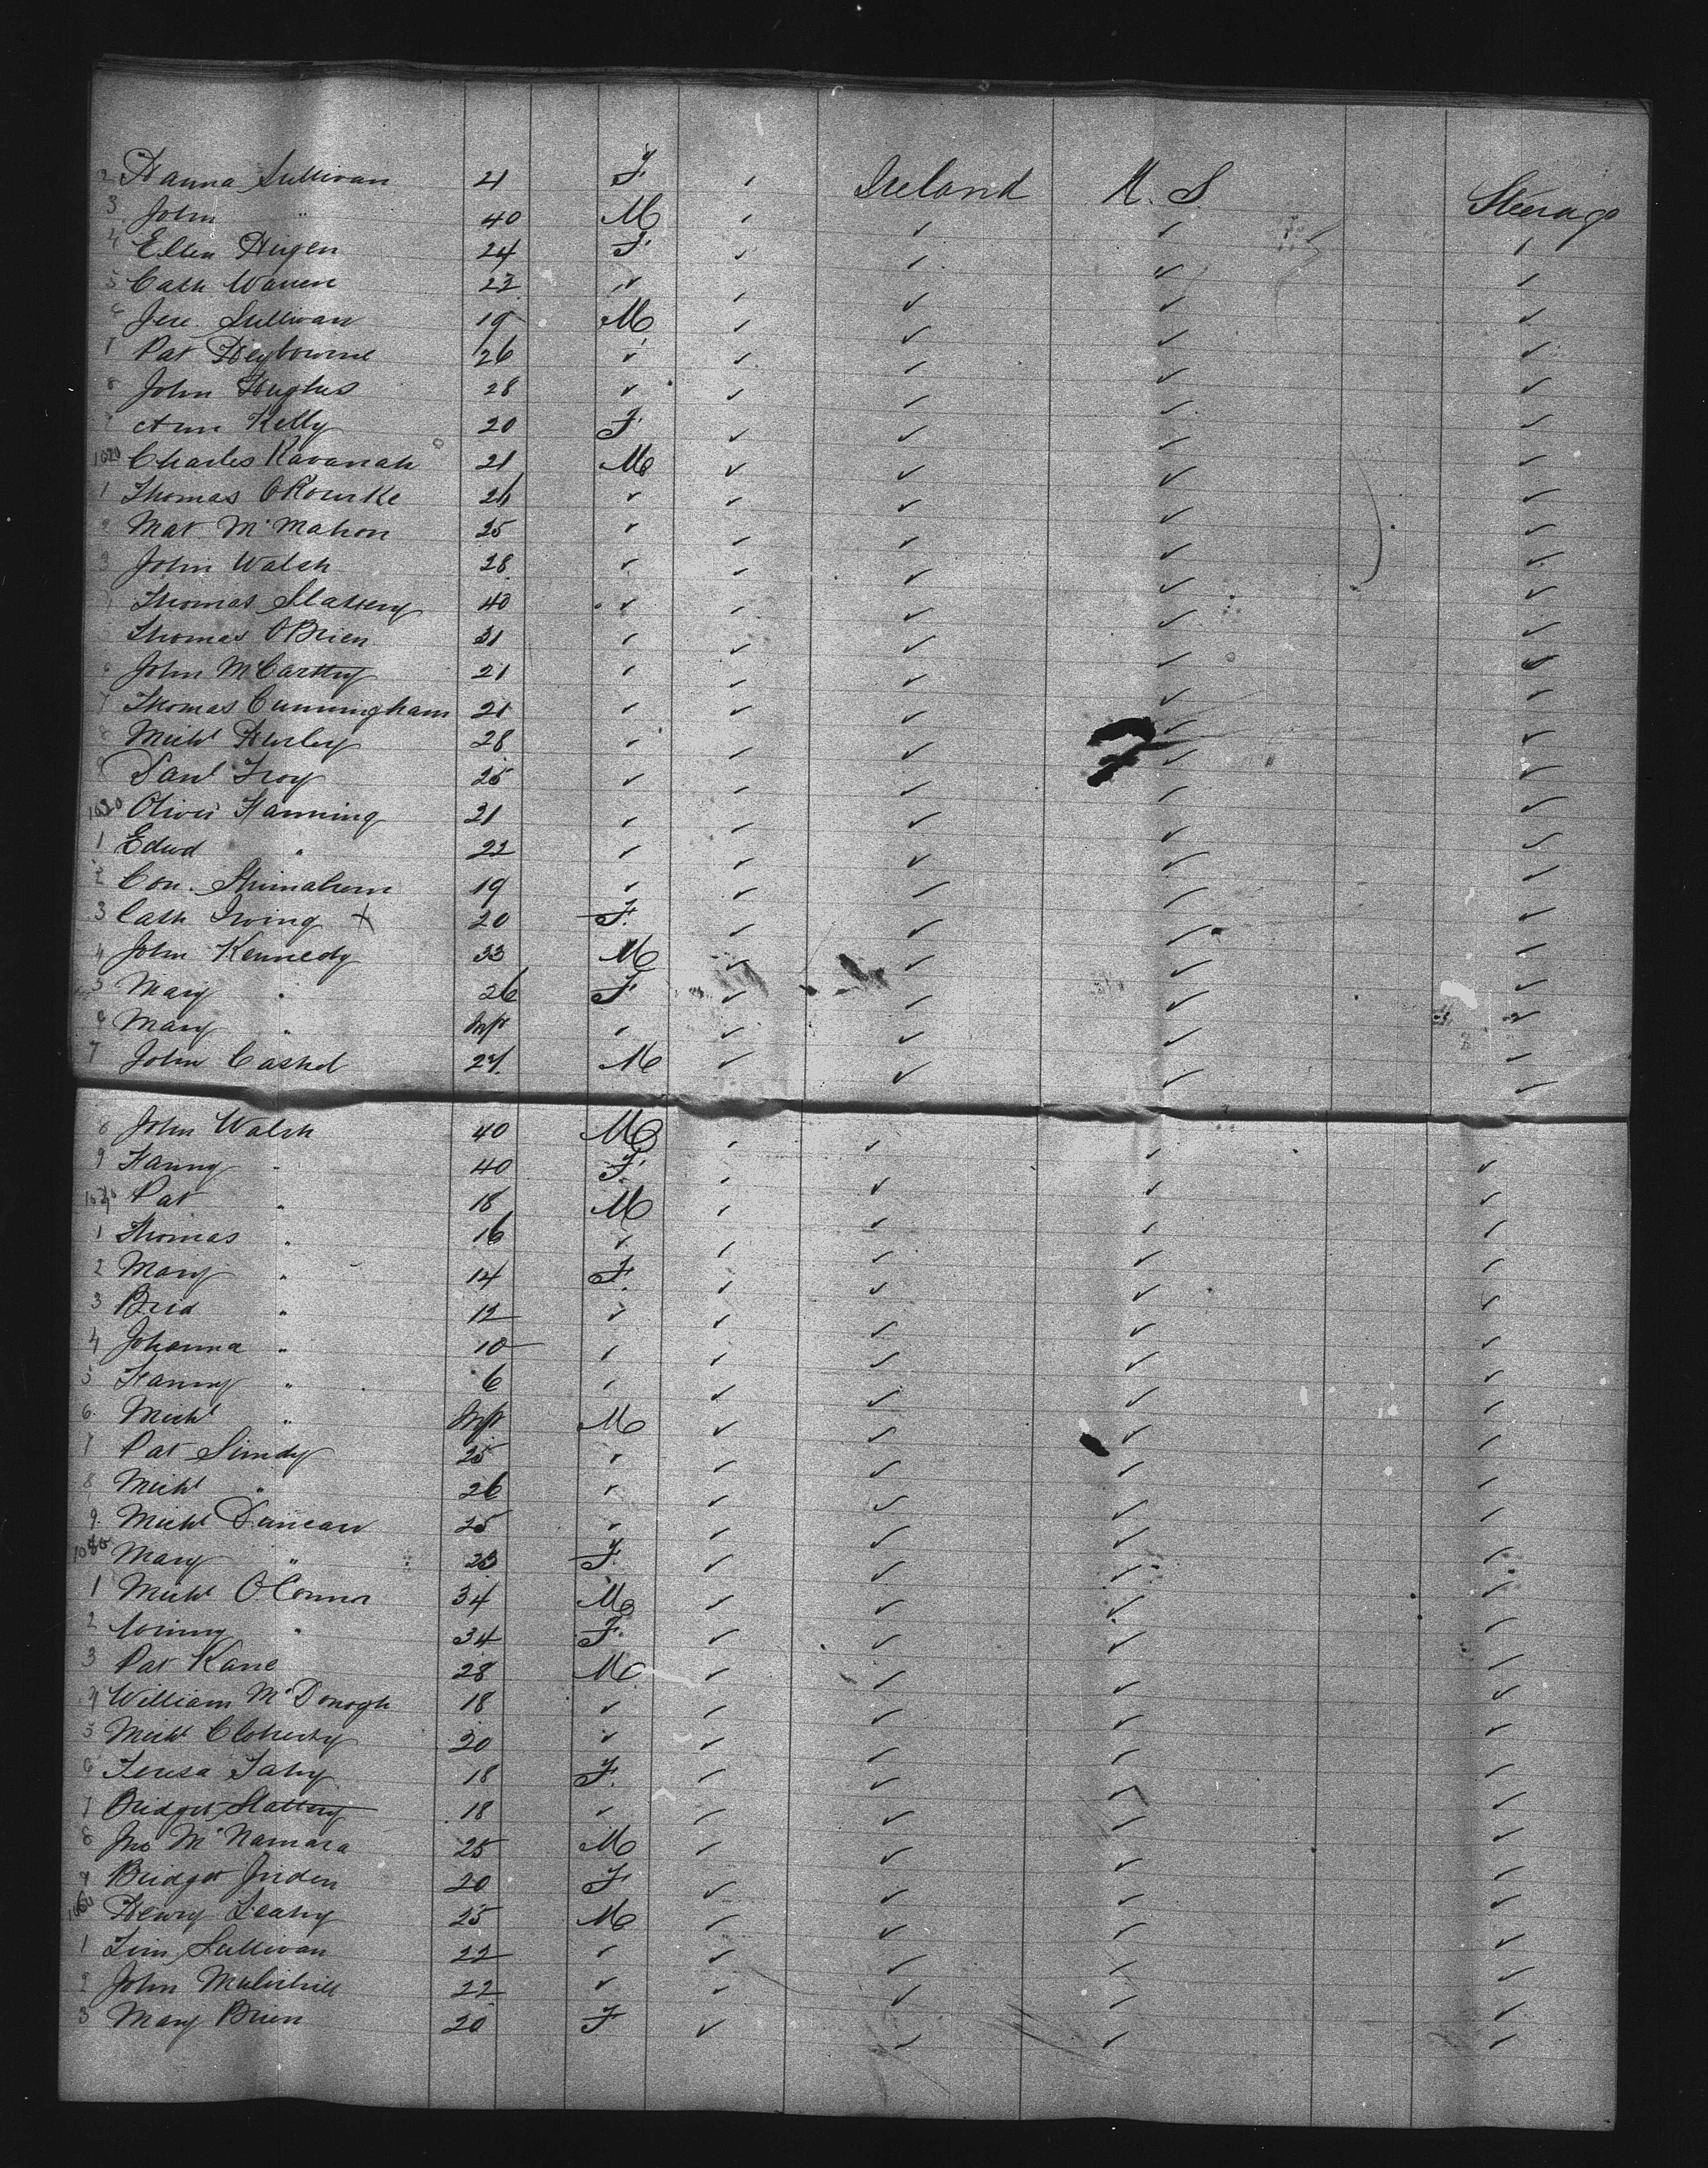 2 Hanna Sullivan 21 F Ireland U. S Steerage
3 John " 40 M
4 Ellen 24 F
5 Cath Warren 23
6 Jere. Sullivan 19 M
7 Pat 26
8 John Hughes 28
9 Ann Kelly 20 F
1020 Charles Kavanah 21 M
1 Thomas O'Rourke 26
2 Mat McMahon 25
3 John Walsh 28
4 Thomas Slattery 40
5 Thomas O'Brien 31
6 John McCarthy 21
7 Thomas Cunningham 21
8 Michl Hurley 28
9 Danl Troy 25
1030 Oliver Fanning 21
1 Edwd " 22
2 Con. 19
3 Cath Irving + 20 F.
4 John Kennedy 33 M
5 Mary " 26 F
6 Mary " Inft
7 John Cashel 27. M
8 John Walsh 40 M
9 Fanny " 40 F.
1040 Pat " 18 M
1 Thomas " 16
2 Mary " 14 F.
3 Brid " 12
4 Johanna " 10
5 Fanny " 6
6. Michl " Inft M
7 Pat 25
8 Michl " 26
9. Michl Duncan 25
1050 Mary " 23 F.
1 Michl O'Connor 34 M
2 Winny " 34 F.
3 Pat Kane 28 M
4 William McDonogh 18
5 Michl Cloherty 20
6 Teresa 18 F.
7 Bridget Slattery 18
8 Jno McNamara 25 M
9 Bridget 20 F
1060 Henry Leahy 25 M
1 Tim Sullivan 22
2 John Mulvihill 22
3 Mary Brien 20 F